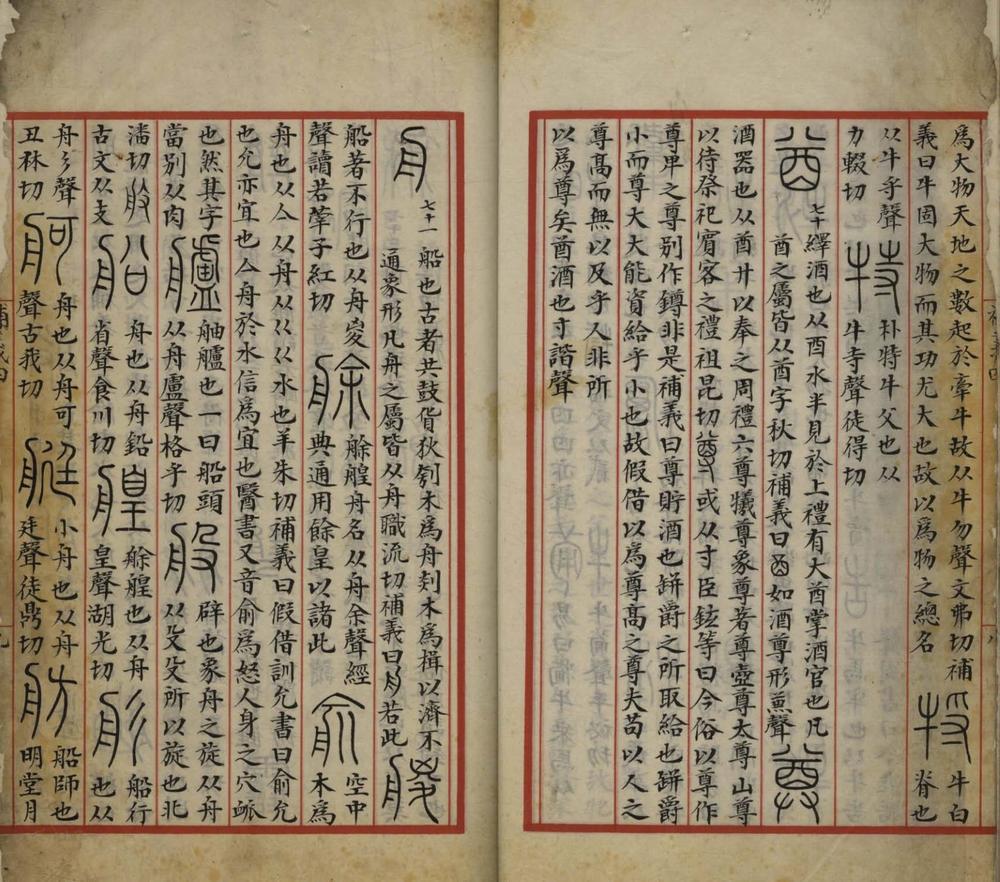 為大物天地之數起於牽牛故从牛勿聲文弗切補 㸹 牛白
義曰牛固大物而其功尤大也故以為物之總名 脊也
从牛寽聲 特 朴特牛父也从
力輟切 牛寺聲徒得切
酋 七十 繹酒也从酉水半見於上禮有大酋掌酒官也凡
酋之屬皆从酋字秋切補義曰酉如酒尊形蒸聲 尊
酒器也从酋廾以奉之周禮六尊犧尊象尊著尊壺尊太尊山尊
以待祭祀賓客之禮祖昆切尊或从寸臣鉉等曰今俗以尊作
尊卑之尊別作罇非是補義曰尊貯酒也缾爵之所取給也缾爵
小而尊大大能資給乎小也故假借以為尊高之尊夫苟以人之
尊高而無以及乎人非所
以為尊矣酋酒也寸諧聲
舟 七十一 船也古者共鼓貨狄刳木為舟剡木為楫以濟不
通象形凡舟之屬皆从舟職流切補義曰舟若此 艐
船著不行也从舟嵏 艅 艅艎舟名从舟余聲經 俞 空中
聲讀若䔞子紅切 典通用餘皇以諸此 木為
舟也从亼从舟从巜巜水也羊朱切補義曰假借訓允書曰俞允
也允亦宜也亼舟於水信為宜也醫書又音俞為怒人身之穴䘑
也然其字 艫 舳艫也一曰船頭 般 辟也象舟之旋从舟
當別从肉 从舟盧聲格乎切 从殳殳所以旋也北
潘切 船 舟也从舟鉛 艎 艅艎也从舟 彤 船行
古文从支 省聲食川切 皇聲湖光切 也从
舟彡聲 舸 舟也从舟可 艇 小舟也从舟 舫 船師也
丑林切 聲古我切 廷聲徒鼎切 明堂月